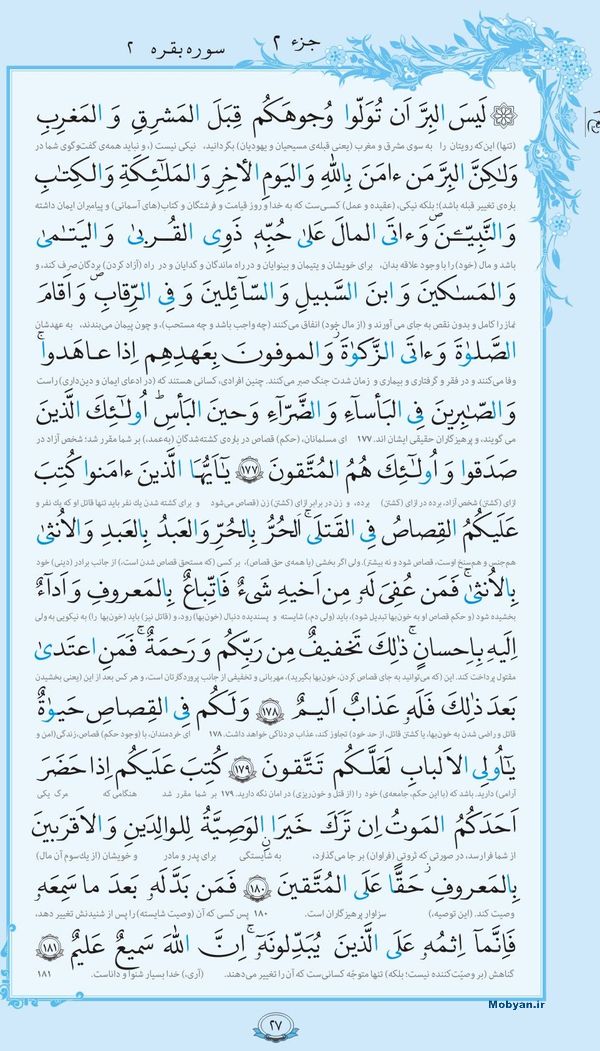 جزء ۲
سوره بقره ۲
لَیسَ البِرَّ اَن تُوَلّوا وُجوهَکُم قِبَلَ المَشرِقِ وَ المَغرِبِ
(تنها) این که رویتان را به سوی مشرق و مغرب (یعنی قبله‌ی مسیحیان و یهودیان) بگردانید، نیکی نیست (، و نباید همه‌ی گفت‌وگوی شما در
وَلٰکِنَّ البِرَّ مَن ءامَنَ بِاللّٰهِ وَ الیَومِ الأخِرِ وَ المَلٰٓئِکَةِ وَ الکِتٰبِ
باره‌ی تغییر قبله باشد)؛ بلکه نیکی، (عقیده و عمل) کسی‌ست که به خدا و روز قیامت و فرشتگان و کتاب(های آسمانی) و پیامبران ایمان داشته
وَ النَّبِیّٖنَ وَ ءاتَی المالَ عَلیٰ حُبِّهٖ ذَوِی القُربیٰ وَ الیَتٰمیٰ
باشد و مال (خود) را با وجود علاقه بدان، برای خویشان و یتیمان و بینوایان و در راه ماندگان و گدایان و در راه (آزاد کردن) بردگان صرف کند، و
وَ المَسٰکینَ وَ ابنَ السَّبیلِ وَ السّآئِلینَ وَ فِی الرِّقابِ وَ اَقامَ
نماز را کامل و بدون نقص به جای می آورند و (از مال خود) انفاق می‌کنند (چه واجب باشد و چه مستحب)، و چون پیمان می‌بندند، به عهدشان
الصَّلوٰةَ وَ ءاتَی الزَّکوٰةَ وَ الموفونَ بِعَهدِهِم اِذا عاهَدوا
وفا می‌کنند و در فقر و گرفتاری و بیماری و زمان شدت جنگ صبر می‌کنند. چنین افرادی، کسانی هستند که (در ادعای ایمان و دین‌داری) راست
وَ الصّٰبِرینَ فِی البَأسآءِ وَ الضَّرّآءِ وَ حینَ البَأسِ اُولٰٓئِکَ الَّذینَ
می گویند، و پرهیزگاران حقیقی ایشان اند. ۱۷۷ ای مسلمانان، (حکم) قصاص در باره‌ی کشته‌شدگان (به‌عمد)، بر شما مقرر شد؛ شخص آزاد در
صَدَقوا وَ اُولٰٓئِکَ هُمُ المُتَّقونَ ۱۷۷ یٰٓاَیُّهَا الَّذینَ ءامَنوا کُتِبَ
ازای (کشتن) شخص آزاد، برده در ازای (کشتن) برده، و زن در برابر ازای (کشتن) زن (قصاص می‌شود و برای کشته شدن یك نفر باید تنها قاتل او که یك نفر و
عَلَیکُمُ القِصاصُ فِی القَتلیٰ اَلحُرُّ بِالحُرِّ وَ العَبدُ بِالعَبدِ وَ الاُنثیٰ
هم‌جنس و هم‌سنخ اوست، قصاص شود و نه بیشتر). ولی اگر بخشی (یا همه‌ی حق قصاص)، بر کسی (که مستحق قصاص شدن است،) از جانب برادر (دینی) خود
بِالاُنثیٰ فَمَن عُفِیَ لَهٗ مِن اَخیهِ شَیءٌ فَاتِّباعٌ بِالمَعروفِ وَ اَدآءٌ
بخشیده شود (و حکم قصاص او به خون‌بها تبدیل شود)، باید (ولی دم،) شایسته و پسندیده دنبال (خون‌بها) رود، و (قاتل نیز) باید (خون‌بها) را به نیکویی به ولی
اِلَیهِ بِاِحسانٍ ذٰلِکَ تَخفیفٌ مِن رَبِّکُم وَ رَحمَةٌ فَمَنِ اعتَدیٰ
مقتول پرداخت کند. این (که می‌توانید به جای قصاص کردن، خون‌بها بگیرید)، مهربانی و تخفیفی از جانب پروردگارتان است، و هر کس بعد از این (یعنی بخشیدن
بَعدَ ذٰلِکَ فَلَهٗ عَذابٌ اَلیمٌ ۱۷۸ وَ لَکُم فِی القِصاصِ حَیوٰةٌ
قاتل و راضی شدن به خون‌بها، یا کشتن قاتل، از حد خود) تجاوز کند، عذاب دردناکی خواهد داشت. ۱۷۸ ای خردمندان، با (وجود حکم) قصاص، زندگی (امن و
یٰٓاُولِی الاَلبابِ لَعَلَّکُم تَتَّقونَ ۱۷۹ کُتِبَ عَلَیکُم اِذا حَضَرَ
آرامی) دارید. باشد که (با این حکم، جامعه‌ی) خود را (از قتل و خون‌ریزی) در امان نگه دارید. ۱۷۹ بر شما مقرر شد هنگامی که مرگ یکی
اَحَدَکُمُ المَوتُ اِن تَرَکَ خَیرًا الوَصِیَّةُ لِلوالِدَینِ وَ الاَقرَبینَ
از شما فرارسد، در صورتی که ثروتی (فراوان) بر جا می‌گذارد، به شایستگی برای پدر و مادر و خویشان (از یك‌سوم آن مال)
بِالمَعروفِ حَقًّا عَلَی المُتَّقینَ ۱۸۰ فَمَن بَدَّلَهٗ بَعدَ ما سَمِعَهٗ
وصیت کند. (این توصیه،) سزاوار پرهیزگاران است. ۱۸۰ پس کسی که آن (وصیت شایسته) را پس از شنیدنش تغییر دهد،
فَاِنَّمآ اِثمُهٗ عَلَی الَّذینَ یُبَدِّلونَهٗٓ اِنَّ اللّٰهَ سَمیعٌ عَلیمٌ ۱۸۱
گناهش (بر وصیّت‌کننده نیست؛ بلکه) تنها متوجّه کسانی‌ست که آن را تغییر می‌دهند. (آری،) خدا بسیار شنوا و داناست. ۱۸۱
۲۷
Mobyan.ir